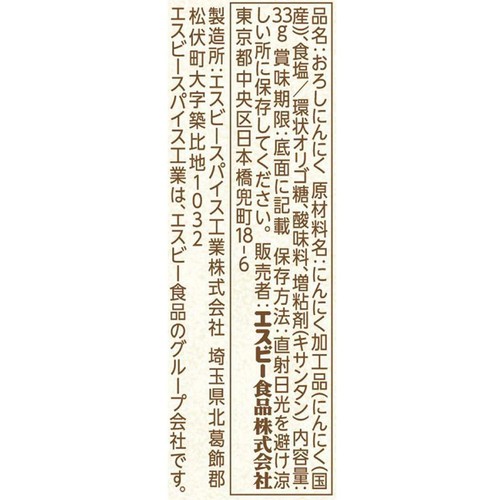 品名：おろしにんにく 原材料名：にんにく加工品（にんにく（国
産））、食塩／環状オリゴ糖、酸味料、増粘剤（キサンタン） 内容量：
33g 賞味期限：底面に記載 保存方法：直射日光を避け涼
しい所に保存してください。 販売者：エスビー食品株式会社
東京都中央区日本橋兜町18-6
製造所：エスビースパイス工業株式会社 埼玉県北葛飾郡
松伏町大字築比地1032
エスビースパイス工業は、エスビー食品のグループ会社です。